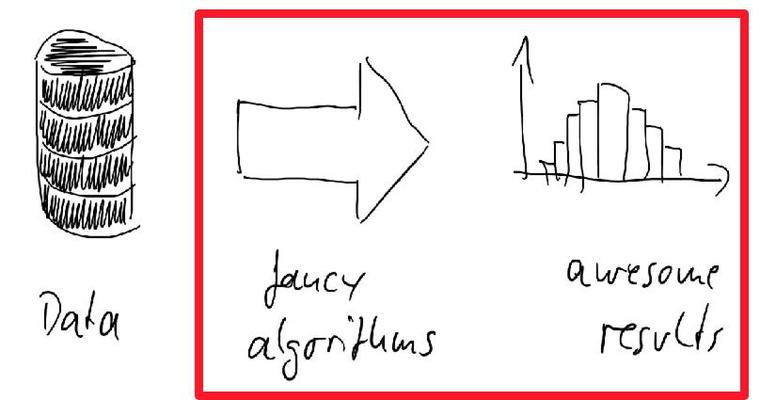 Data
fancy
algorithms
awesome
results